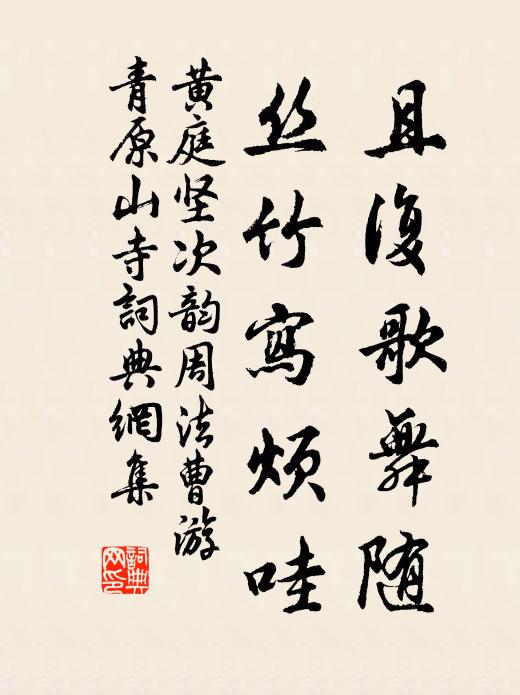 且復歌舞随
丝竹寫煩哇
黄庭坚次韵周法曹游
青原山寺詞典網集
詞典网印